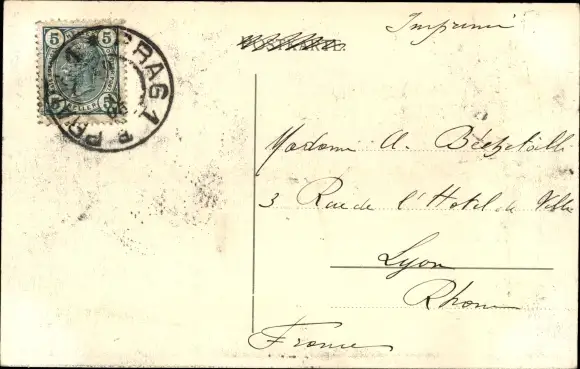 Imprimé
POSTKARTE
5 5
HELLER
PRAG 1
Madame A.
3 Rue de l'Hotel de Ville
Lyon
Rhone
France